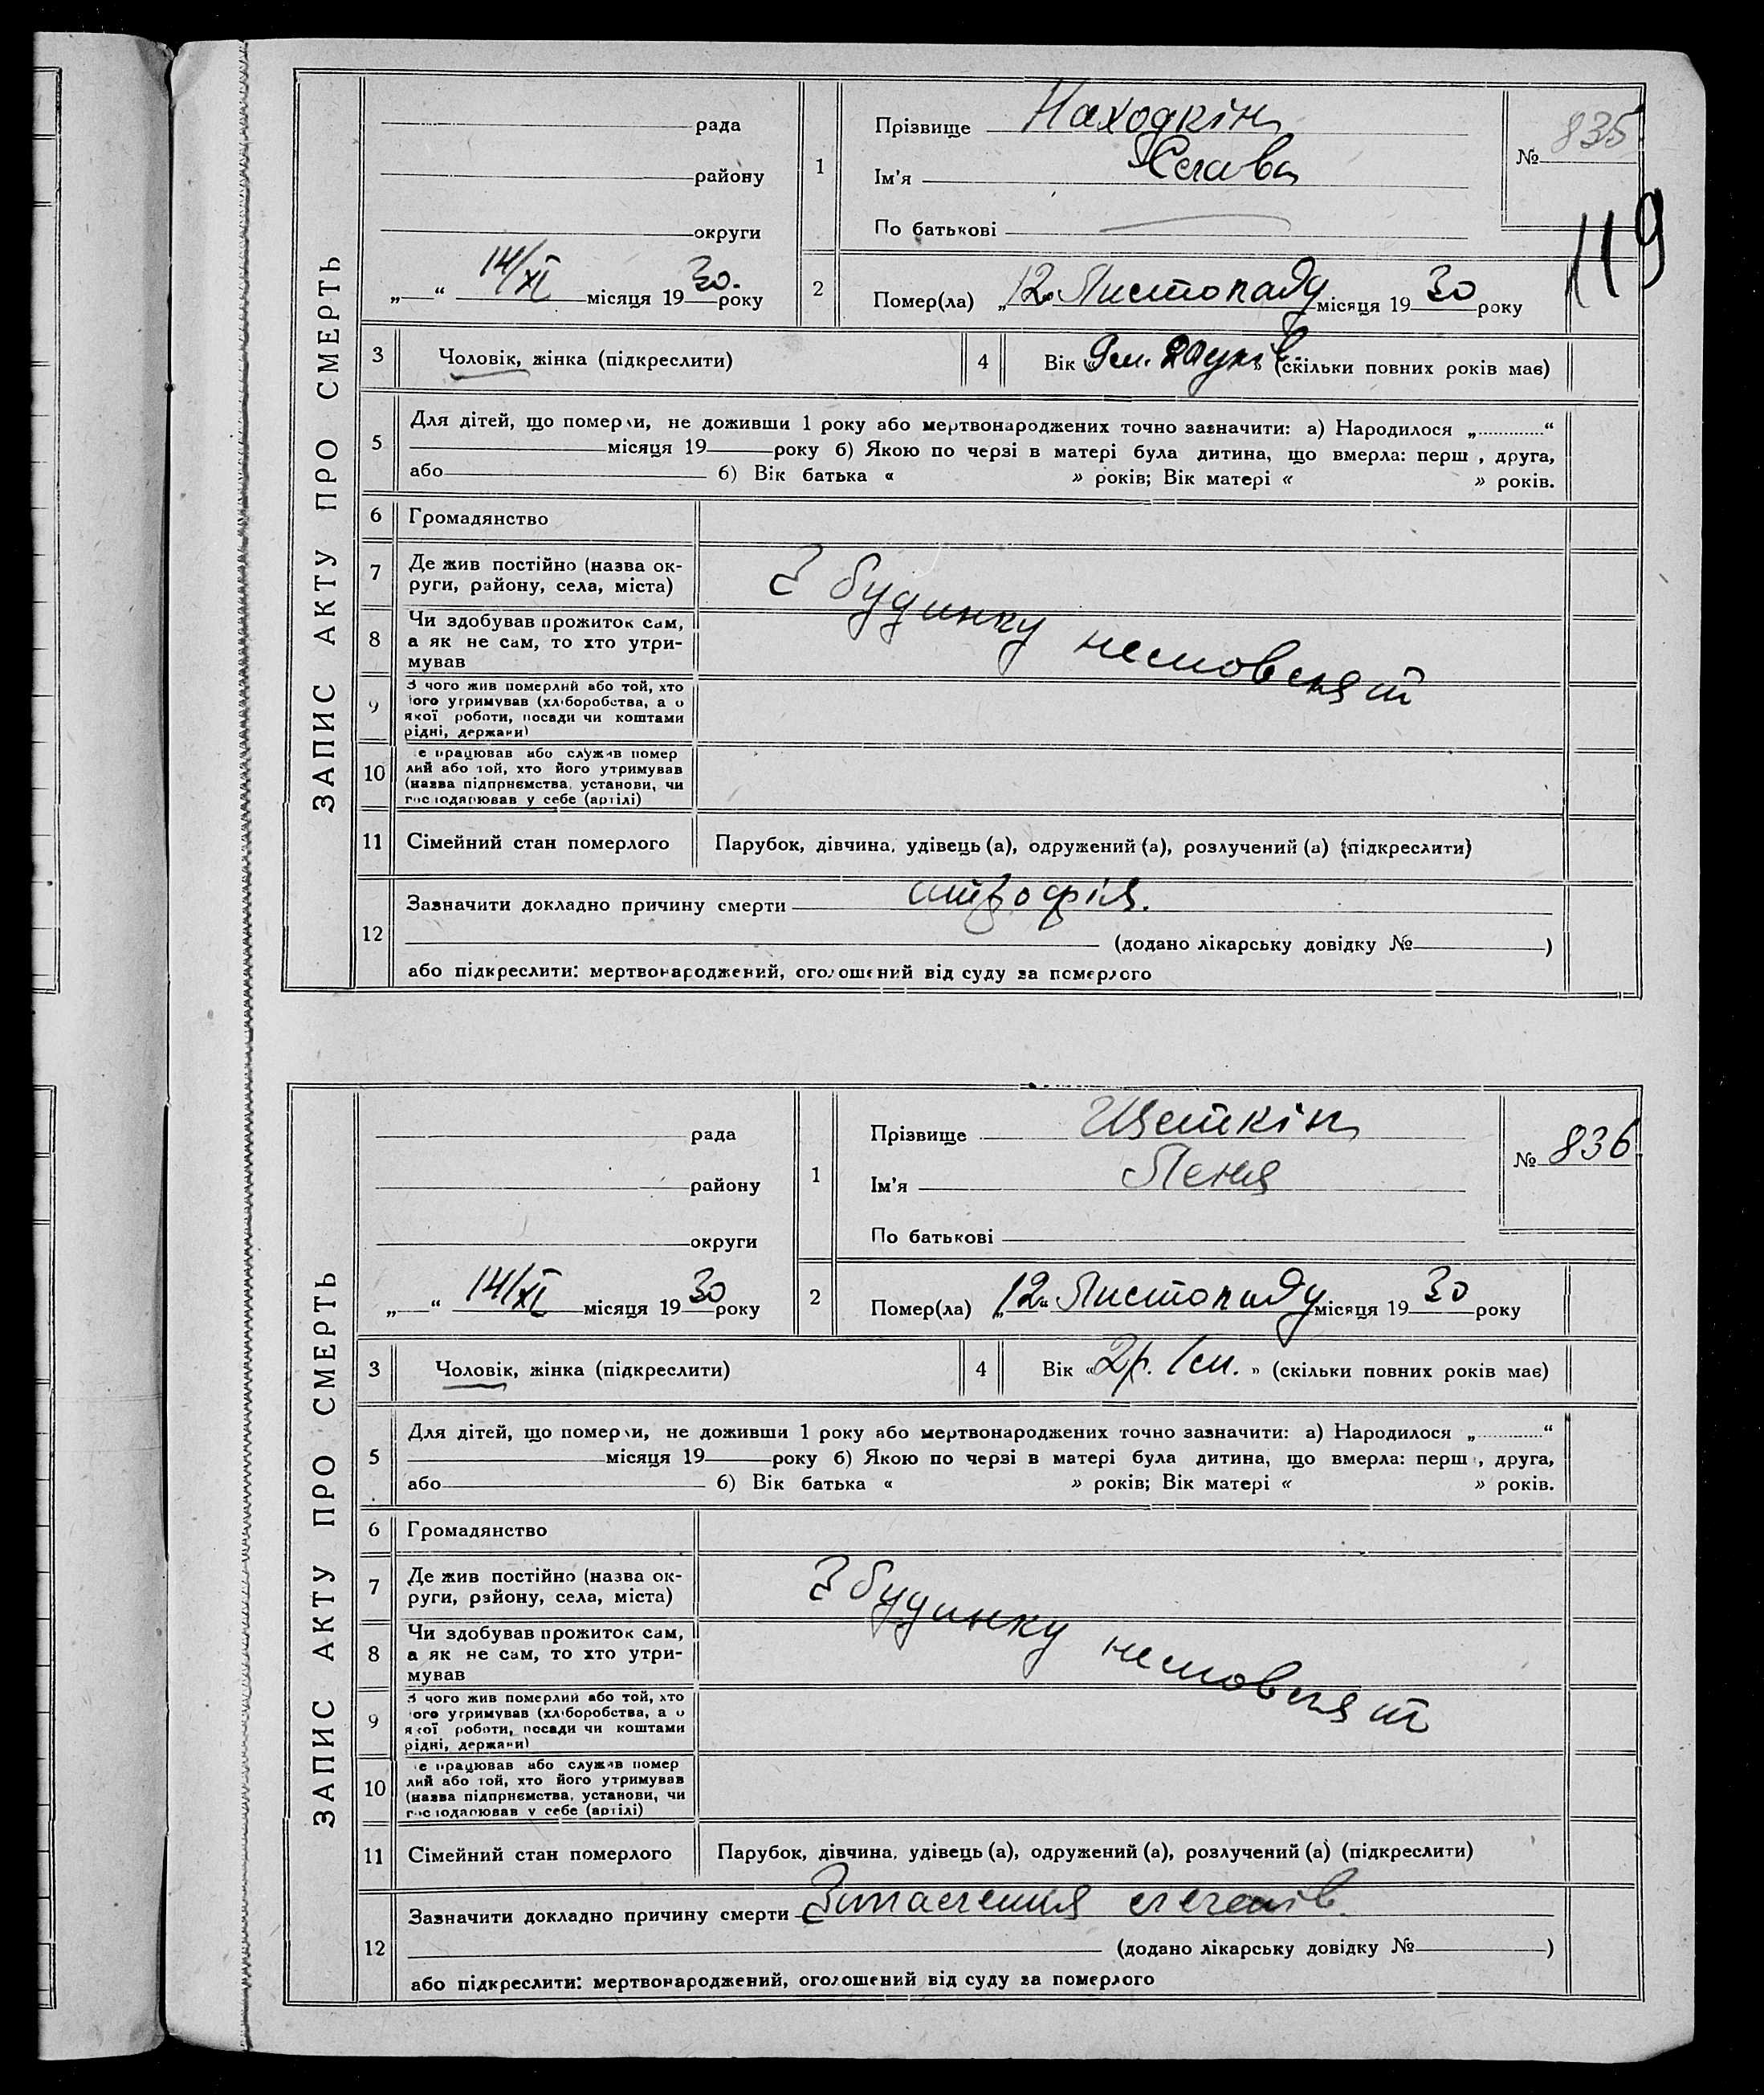 ЗАПИС АКТУ ПРО СМЕРТЬ
рада
району
округи
„ “ 14/XI місяця 1930. року
1
Прізвище Находкін
Ім'я Слава
По батькові
№ 835
119
2
Помер(ла) „12“ Листопаду місяця 1930 року
3 Чоловік, жінка (підкреслити)
4 Вік « » (скільки повних років має)
5 Для дітей, що померли, не доживши 1 року або мертвонароджених точно зазначити: а) Народилося „ “
місяця 19 року б) Якою по черзі в матері була дитина, що вмерла: перш , друга,
або б) Вік батька « » років; Вік матері « » років.
6 Громадянство
7 Де жив постійно (назва ок-
руги, району, села, міста)
З будинку немовлят
8 Чи здобував прожиток сам,
а як не сам, то хто утри-
мував
9 З чого жив померлий або той, хто
його утримував (хліборобства, а о
якої роботи, посади чи коштами
рідні, держави)
10 е працював або служив помер
лий або той, хто його утримував
(назва підприємства, установи, чи
господарював у себе (артілі)
11 Сімейний стан померлого Парубок, дівчина, удівець (а), одружений (а), розлучений (а) (підкреслити)
12 Зазначити докладно причину смерти атрофія.
(додано лікарську довідку № )
або підкреслити: мертвонароджений, оголошений від суду за померлого
ЗАПИС АКТУ ПРО СМЕРТЬ
рада
району
округи
„ “ 14/XI місяця 1930 року
1
Прізвище Щеткін
Ім'я Леня
По батькові
№ 836
2
Помер(ла) „12“ Листопаду місяця 1930 року
3 Чоловік, жінка (підкреслити)
4 Вік «2р. 1 м.» (скільки повних років має)
5 Для дітей, що померли, не доживши 1 року або мертвонароджених точно зазначити: а) Народилося „ “
місяця 19 року б) Якою по черзі в матері була дитина, що вмерла: перш , друга,
або б) Вік батька « » років; Вік матері « » років.
6 Громадянство
7 Де жив постійно (назва ок-
руги, району, села, міста)
З будинку немовлят
8 Чи здобував прожиток сам,
а як не сам, то хто утри-
мував
9 З чого жив померлий або той, хто
його утримував (хліборобства, а о
якої роботи, посади чи коштами
рідні, держави)
10 е працював або служив помер
лий або той, хто його утримував
(назва підприємства, установи, чи
господарював у себе (артілі)
11 Сімейний стан померлого Парубок, дівчина, удівець (а), одружений (а), розлучений (а) (підкреслити)
12 Зазначити докладно причину смерти Запалення легенів.
(додано лікарську довідку № )
або підкреслити: мертвонароджений, оголошений від суду за померлого